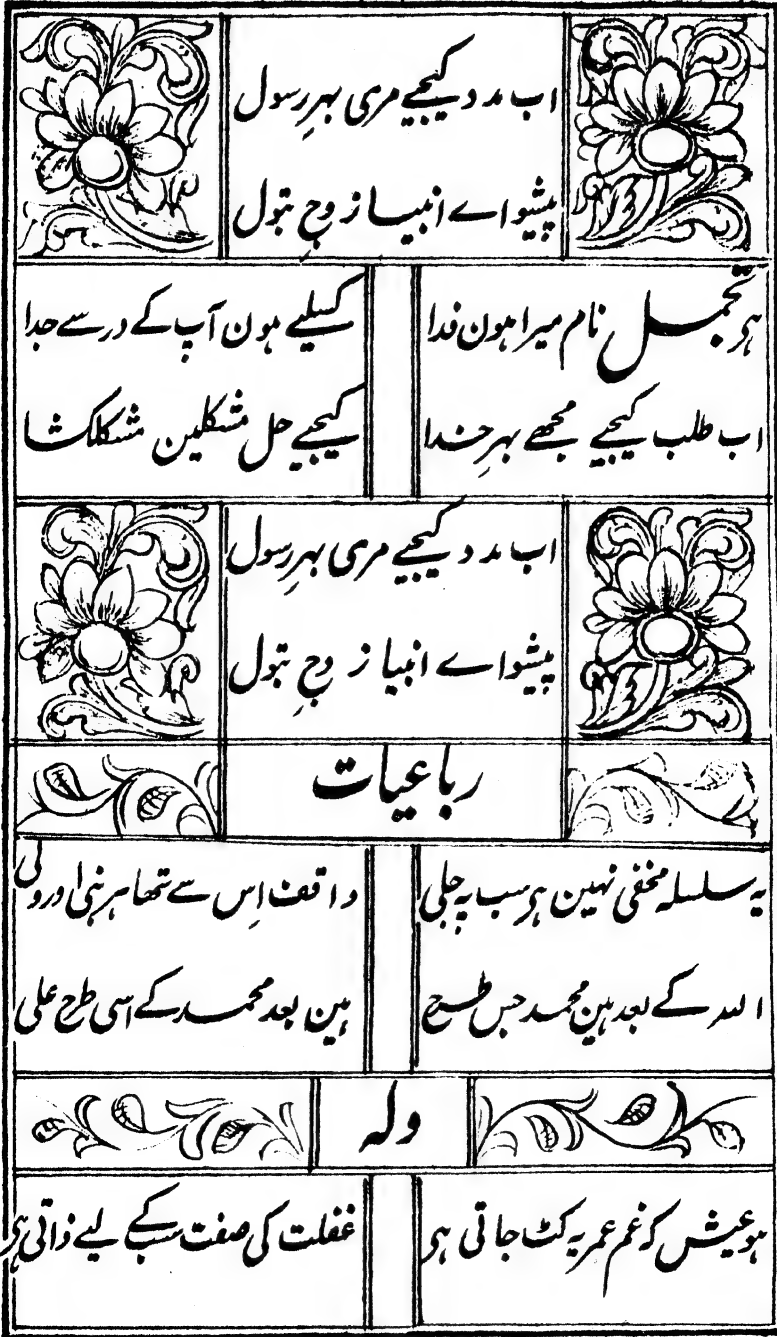 اب مدد کیجیے مری بہرِ رسول
پیشواے انبیا زوجِ بتول
ہر تجمل نام میرا ہون فدا
کیسلیے ہون آپ کے در سے جدا
اب طلب کیجیے مجھے بہرِ خدا
کیجیے حل مشکلین مشکلکشا
اب مدد کیجیے مری بہرِ رسول
پیشواے انبیا زوجِ بتول
رباعیات
یہ سلسلہ مخفی نہین ہر سب پہ جلی
واقف اِس سے تھا ہر نبی اور ولی
اللہ کے بعد ہین محمد جس طرح
ہین بعد محمد کے اسی طرح علی
ولہ
ہو عیش کہ غم عمر یہ کٹ جاتی ہر
غفلت کی صفت سب کے لیے ذاتی ہر